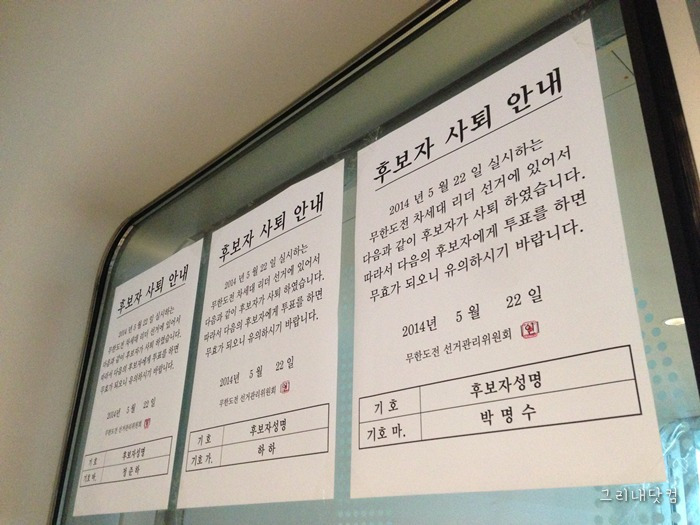 후보자 사퇴 안내
2014년 5월 22일 실시하는
무한도전 차세대 리더 선거에 있어서
다음과 같이 후보자가 사퇴 하였습니다.
따라서 다음의 후보자에게 투표를 하면
무효가 되오니 유의하시기 바랍니다.
2014년 5월 22일
무한도전 선거관리위원회
기호 후보자성명
기호 마. 정준하
후보자 사퇴 안내
2014년 5월 22일 실시하는
무한도전 차세대 리더 선거에 있어서
다음과 같이 후보자가 사퇴 하였습니다.
따라서 다음의 후보자에게 투표를 하면
무효가 되오니 유의하시기 바랍니다.
2014년 5월 22일
무한도전 선거관리위원회
기호 후보자성명
기호 가. 하하
후보자 사퇴 안내
2014년 5월 22일 실시하는
무한도전 차세대 리더 선거에 있어서
다음과 같이 후보자가 사퇴 하였습니다.
따라서 다음의 후보자에게 투표를 하면
무효가 되오니 유의하시기 바랍니다.
2014년 5월 22일
무한도전 선거관리위원회 인
기호 후보자성명
기호 마. 박명수
그리내닷컴